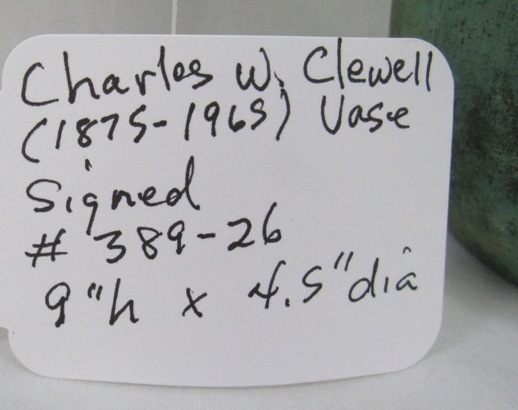 Charles W. Clewell
(1875-1965) Vase
Signed
# 389-26
9"h x 4.5"dia